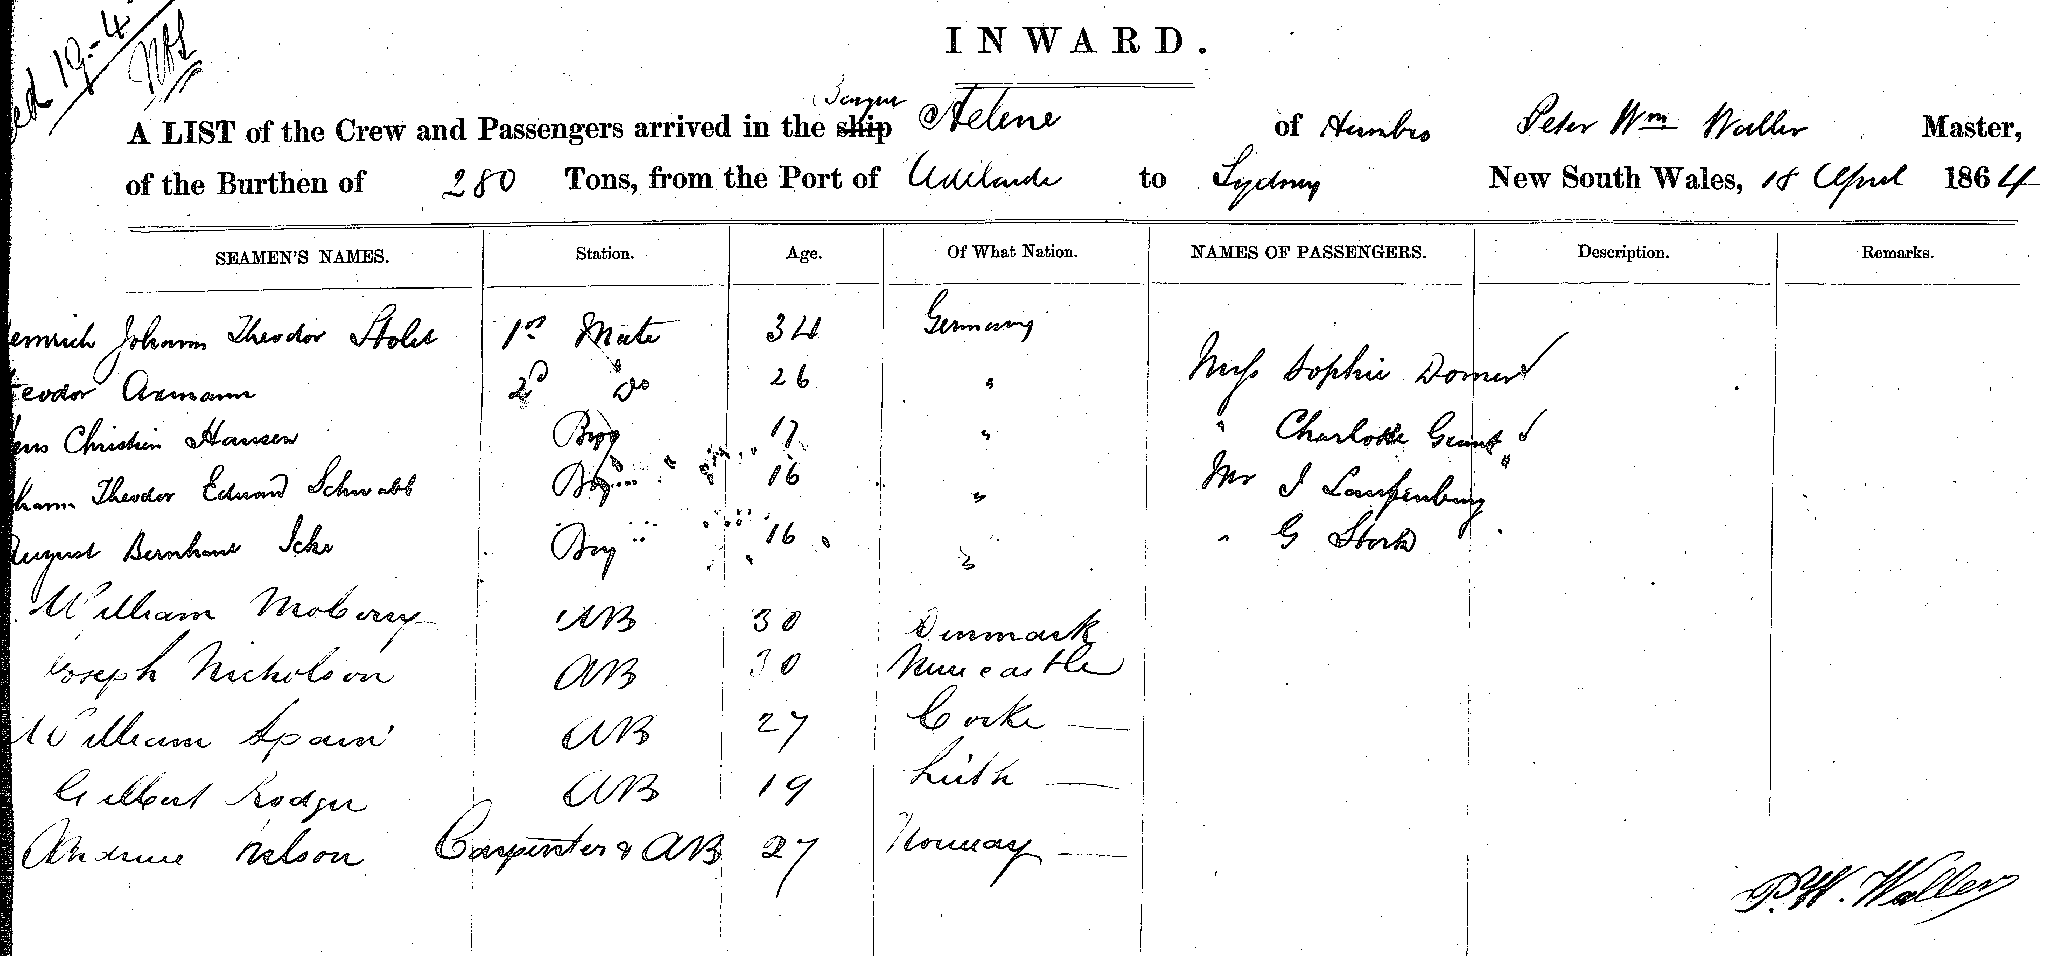 19-4
INWARD.
A LIST of the Crew and Passengers arrived in the ship Helene of Humbro Peter Wm Waller Master,
of the Burthen of 280 Tons, from the Port of Adelaide to Sydney New South Wales, 18 April 1864
SEAMEN'S NAMES. Station. Age. Of What Nation. NAMES OF PASSENGERS. Description. Remarks.
Johann Theodor 1st Mate 34 Germany
Axmann 2d Do 26 " Miss Sophie
Christian Hansen Boy 17 " " Charlotte Grant
Theodor Eduard Schwabb Boy 16 " Mr
August Boy 16 " " G Stork
William AB 30 Denmark
Joseph Nicholson AB 30 Newcastle
William Spain AB 27 Corke
Gilbert Rodger AB 19 Leith
Andrew Nelson Carpenter & AB 27 Norway
P.W. Waller